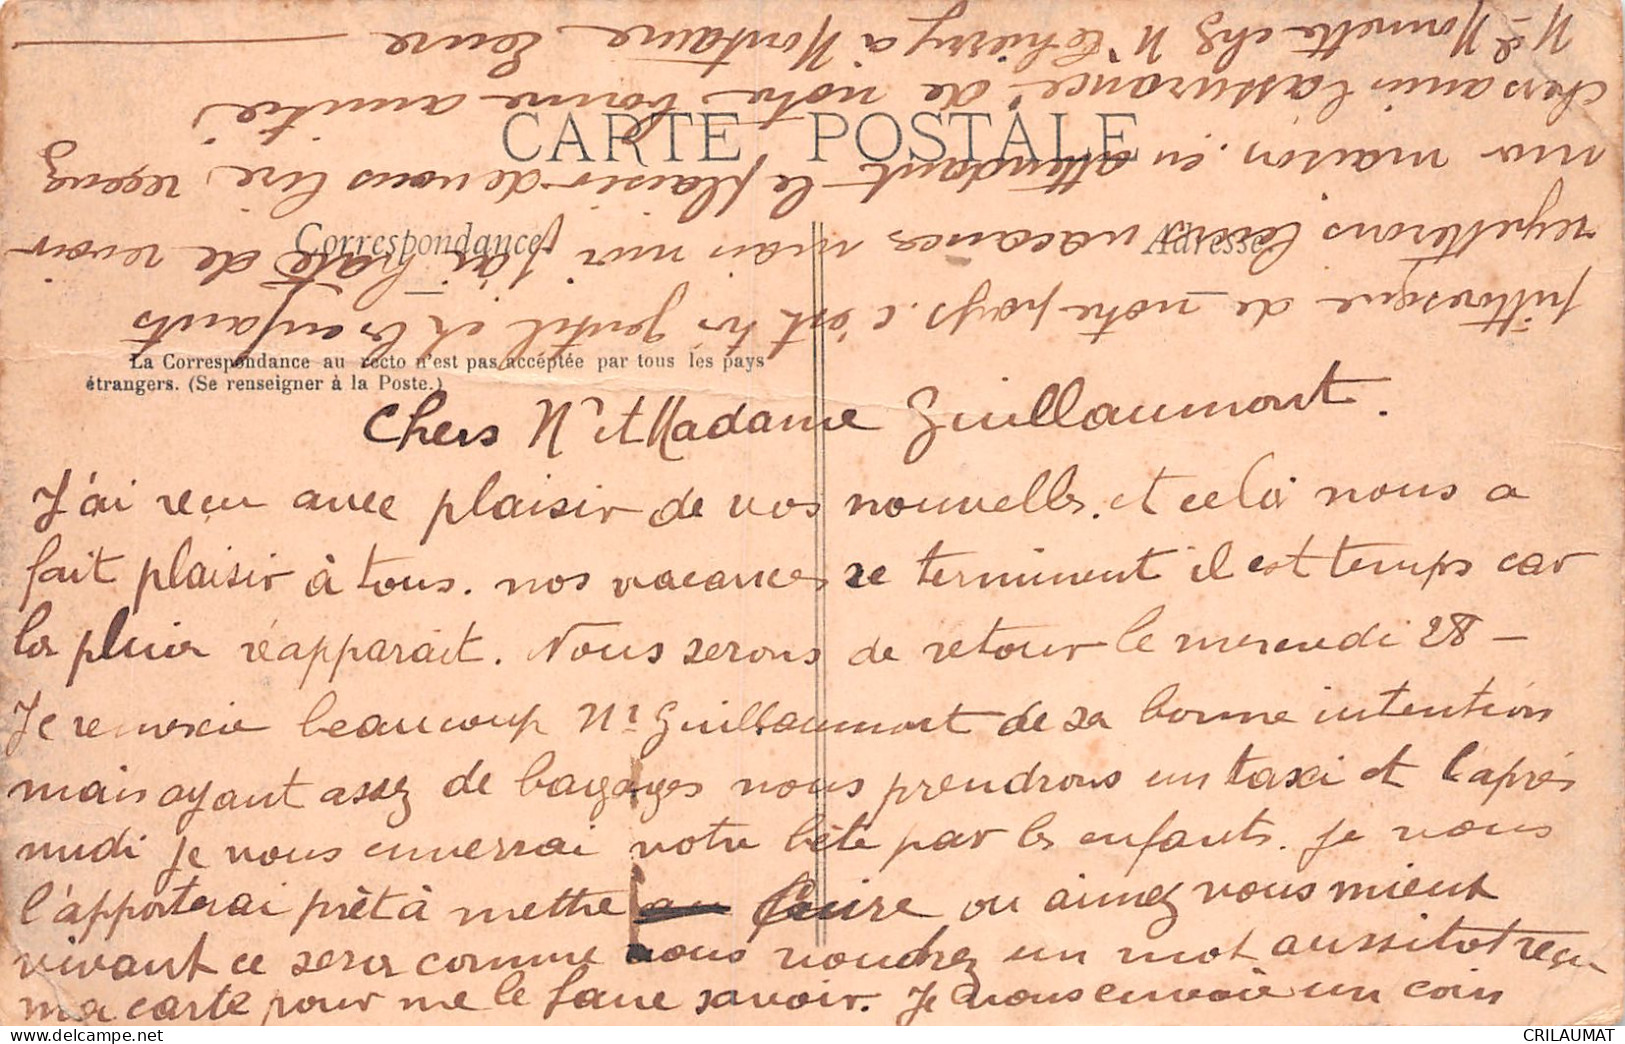 CARTE POSTALE
Correspondance
Adresse
La Correspondance au recto n'est pas acceptée par tous les pays
étrangers. (Se renseigner à la Poste.)
Chers Mr et Madame Guillaumont.
J'ai reçu avec plaisir de vos nouvelles. et cela nous a
fait plaisir à tous. nos vacances se terminent il est temps car
la pluie réapparait. Nous serons de retour le mercredi 28 —
Je remercie beaucoup Mr Guillaumont de sa bonne intention
mais ayant assez de bagages nous prendrons un taxi et l'après
midi je vous enverrai votre bête par les enfants. Je vous
l'apporterai prêt à mettre cuire ou aimez vous mieux
vivant ce sera comme vous voudrez un mot aussitot reçu
ma carte pour me le faire savoir. Je vous envoie un coin
pittoresque de notre pays. c'est très gentil et les enfants
regretterons leurs vacances mais moi j'ai hâte de revoir
ma maison. en attendant le plaisir de vous lire, recevez
chers amis l'assurance de notre bonne amitié.
chez Mr à Eure
CRILAUMAT